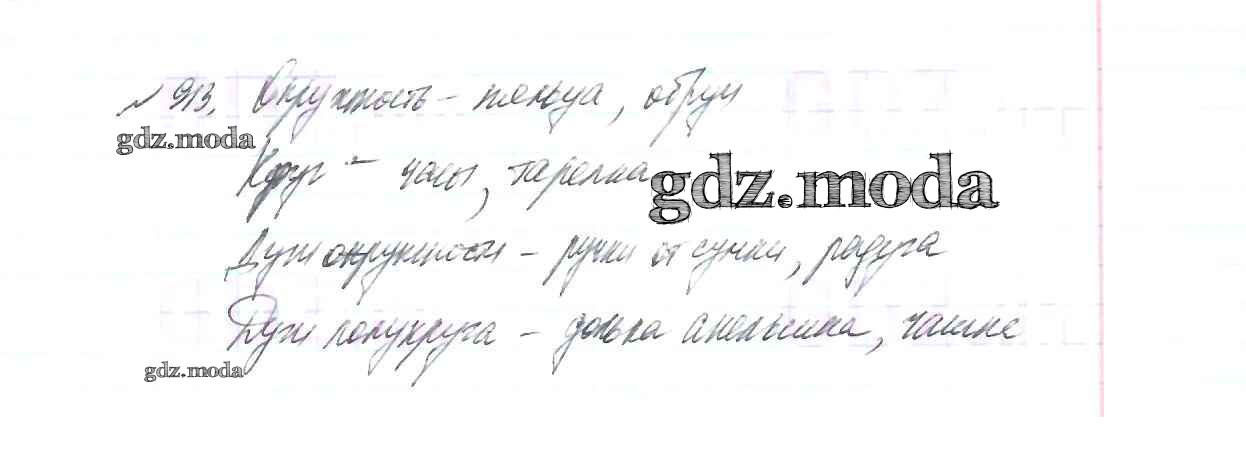 № 913. Окружность – кольца, обруч
gdz.moda
Круг – часы, тарелка
gdz.moda
Дуги окружности – ручки от сумки, радуга
Дуги полукруга – долька апельсина,
gdz.moda